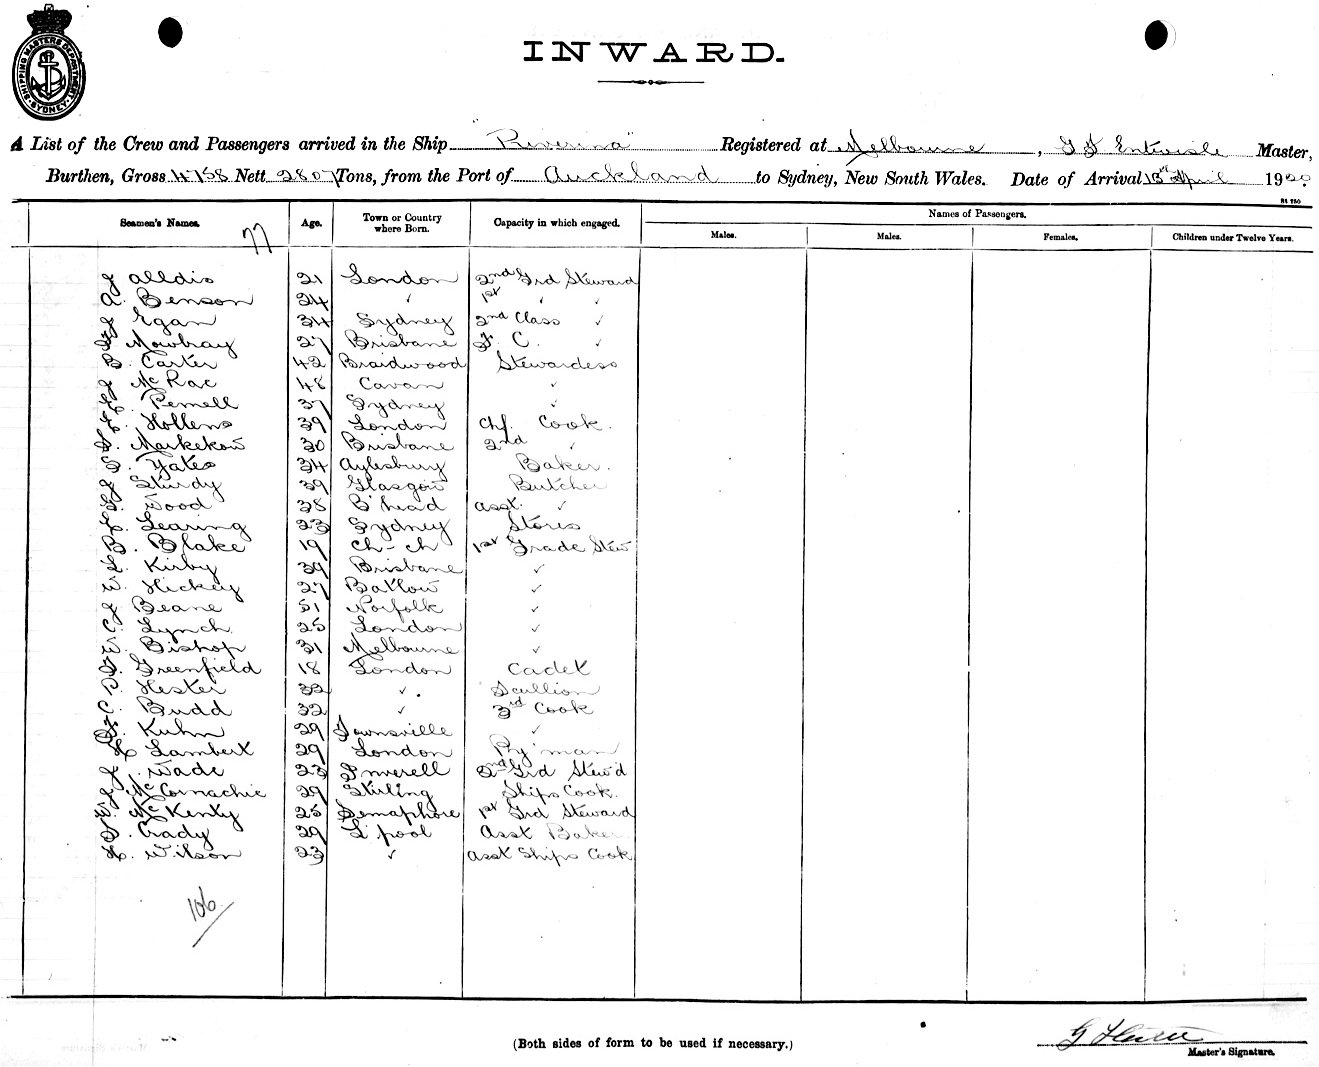 SHIPPING MASTERS DEPARTMENT SYDNEY
INWARD.
A List of the Crew and Passengers arrived in the Ship "Riverina" Registered at Melbourne, Entwisle Master,
Burthen, Gross 4758 Nett 2807 Tons, from the Port of Auckland to Sydney, New South Wales. Date of Arrival April 1920
Seamen's Names. Age. Town or Country where Born. Capacity in which engaged. Names of Passengers.
Males. Males. Females. Children under Twelve Years.
77
J Alldis 21 London 2nd Grd Steward
Benson 24 " 1st " "
J Egan 34 Sydney 2nd Class "
Mowbray 27 Brisbane F. C. "
B. Carter 42 Braidwood Stewardess
J McRae 48 Cavan "
Pernell 37 Sydney "
Hollens 39 London Chf. Cook.
Markekow 30 Brisbane 2nd "
Yates 34 Aylesbury Baker.
J Sturdy 39 Glasgow Butcher
Wood 38 B'head asst. "
Learing 23 Sydney Stores
B. Blake 19 Ch-ch 1st Grade Stew
Kirby 39 Brisbane "
W. Hickey 27 Batlow "
J Beane 51 Norfolk "
C. Lynch 25 London "
W. Bishop 31 Melbourne "
Greenfield 18 London Cadet
Hester 32 " Scullion
C. Budd 32 " 3rd Cook
Kuhn 29 Townsville "
Lambert 29 London Py'man
J. Wade 23 Inverell 2nd Grd Stew'd
J McCornachie 29 Stirling Ships Cook.
W. McKenty 25 Semaphore 1st Grd Steward
Grady 29 L'pool Asst Baker
Wilson 23 " Asst Ships Cook
106
(Both sides of form to be used if necessary.)
Master's Signature.